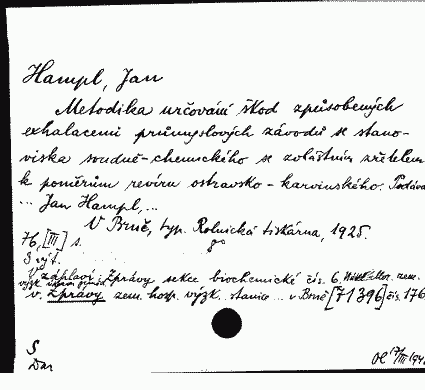 Hampl, Jan
Metodika určování škod způsobených
exhalacemi průmyslových závodů se stano-
viska soudně-chemického se zvláštním zřetelem
k poměrům revíru ostravsko-karvinského. Podává
... Jan Hampl,...
V Brně, typ. Rolnická tiskárna, 1925.
76, [III] s. 8°
S výt.
V záhlaví: Zprávy sekce biochemické čís. 6. zem.
v. Zprávy zem. hosp. výzk. stanice ... v Brně [71396] čís. 176
S
Dar